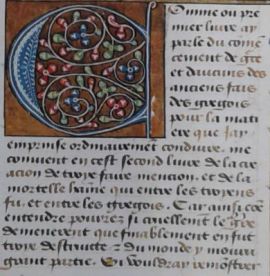 Comme ou pre
mier livre ay
parle du com̄e
cement de grece
et daucuns des
anciens fais
des gregois
pour la mati
ere que Jay
emprinse ordinairement conduire. me
convient en cest second livre de la cre
acion de troye faire mencion. et de la
mortelle haine qui entre les troyens
fu. et entre les gregois. Car ainsi co͞e
entendre pourrez si cruellement le
demenerent que finablement en fut
troye destruicte. du monde y mourut
grant partie. Si vouldray